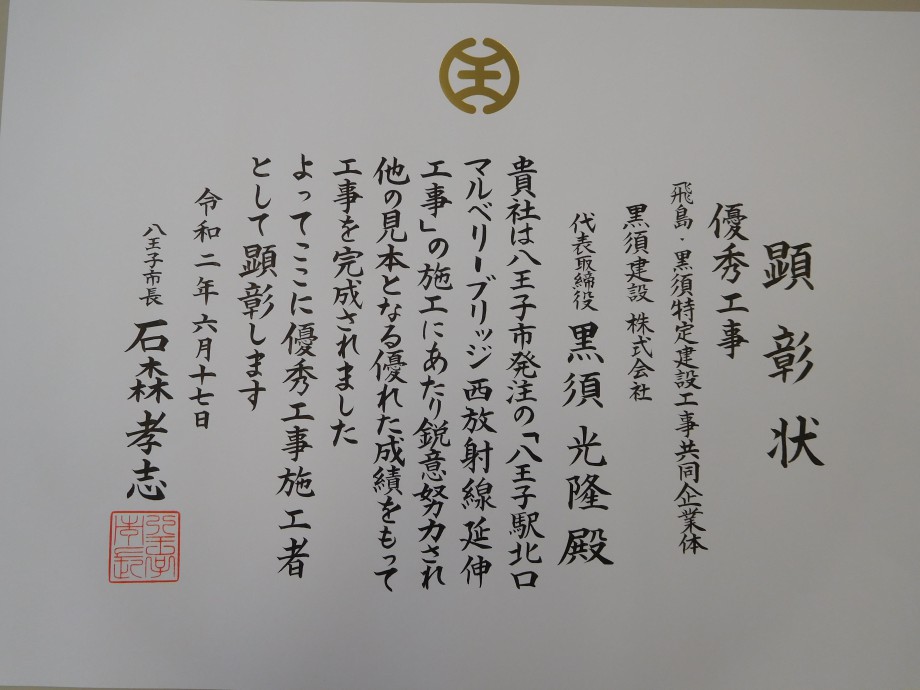 顕彰状
優秀工事
飛島・黒須特定建設工事共同企業体
黒須建設 株式会社
代表取締役 黒須光隆殿
貴社は八王子市発注の「八王子駅北口
マルベリーブリッジ西放射線延伸
工事」の施工にあたり鋭意努力され
他の見本となる優れた成績をもって
工事を完成されました
よってここに優秀工事施工者
として顕彰します
令和二年六月十七日
八王子市長 石森孝志